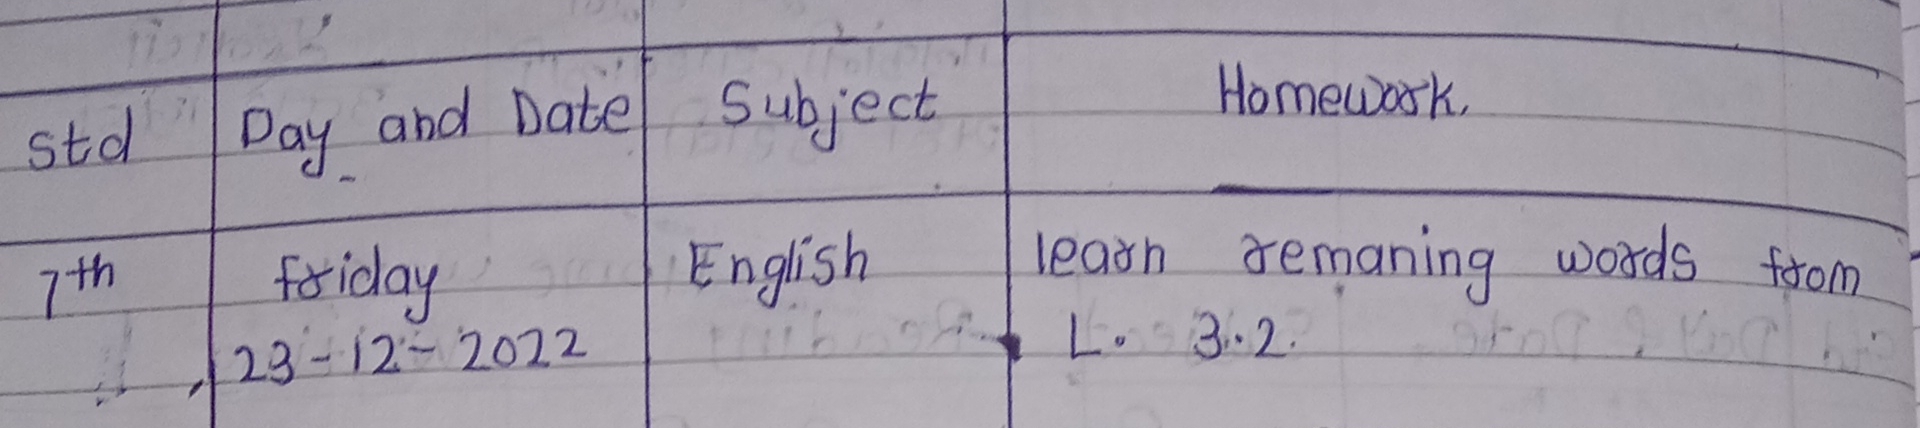 std Day and Date Subject Homework.
7th friday English learn remaning words from
23-12-2022 L. 3.2.